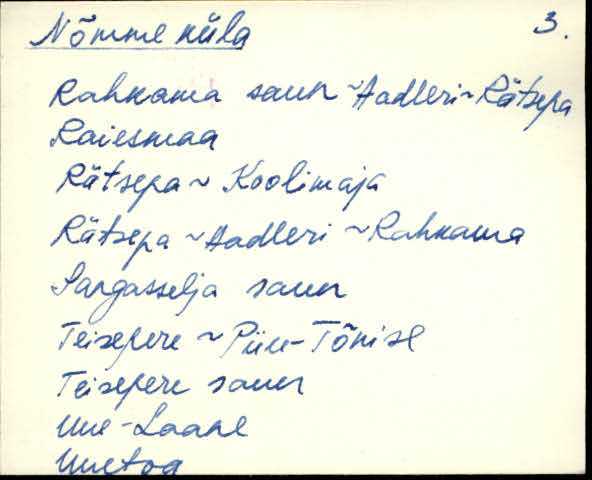 Nõmme küla 3.
Rahkama saun ~ Aadleri ~ Rätsepa
Raiesmaa
Rätsepa ~ Koolimaja
Rätsepa ~ Aadleri ~ Rahkama
Sargasselja saun
Teisepere ~ Piiu-Tõnise
Teisepere saun
Uue-Laane
Uuetoa